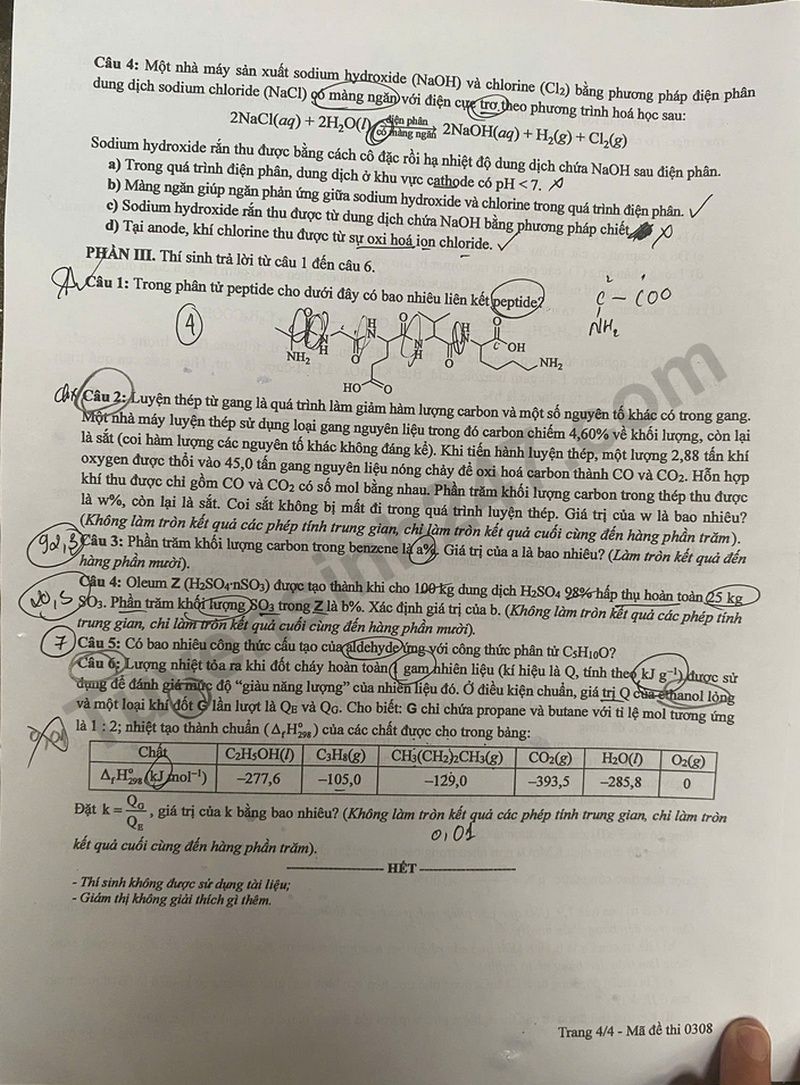 Câu 4: Một nhà máy sản xuất sodium hydroxide (NaOH) và chlorine (Cl₂) bằng phương pháp điện phân
dung dịch sodium chloride (NaCl) có màng ngăn với điện cực trơ theo phương trình hoá học sau:
2NaCl(aq) + 2H₂O(l) điện phân có màng ngăn 2NaOH(aq) + H₂(g) + Cl₂(g)
Sodium hydroxide rắn thu được bằng cách cô đặc rồi hạ nhiệt độ dung dịch chứa NaOH sau điện phân.
a) Trong quá trình điện phân, dung dịch ở khu vực cathode có pH < 7.
b) Màng ngăn giúp ngăn phản ứng giữa sodium hydroxide và chlorine trong quá trình điện phân.
c) Sodium hydroxide rắn thu được từ dung dịch chứa NaOH bằng phương pháp chiết
d) Tại anode, khí chlorine thu được từ sự oxi hoá ion chloride.
PHẦN III. Thí sinh trả lời từ câu 1 đến câu 6.
Câu 1: Trong phân tử peptide cho dưới đây có bao nhiêu liên kết peptide?
C - COO
NH₂
4
NH₂ OH NH₂
HO O
Câu 2: Luyện thép từ gang là quá trình làm giảm hàm lượng carbon và một số nguyên tố khác có trong gang.
Một nhà máy luyện thép sử dụng loại gang nguyên liệu trong đó carbon chiếm 4,60% về khối lượng, còn lại
là sắt (coi hàm lượng các nguyên tố khác không đáng kể). Khi tiến hành luyện thép, một lượng 2,88 tấn khí
oxygen được thổi vào 45,0 tấn gang nguyên liệu nóng chảy để oxi hoá carbon thành CO và CO₂. Hỗn hợp
khí thu được chỉ gồm CO và CO₂ có số mol bằng nhau. Phần trăm khối lượng carbon trong thép thu được
là w%, còn lại là sắt. Coi sắt không bị mất đi trong quá trình luyện thép. Giá trị của w là bao nhiêu?
(Không làm tròn kết quả các phép tính trung gian, chỉ làm tròn kết quả cuối cùng đến hàng phần trăm).
92,3 Câu 3: Phần trăm khối lượng carbon trong benzene là a%. Giá trị của a là bao nhiêu? (Làm tròn kết quả đến
hàng phần mười).
Câu 4: Oleum Z (H₂SO₄·nSO₃) được tạo thành khi cho 100 kg dung dịch H₂SO₄ 98% hấp thụ hoàn toàn 25 kg
SO₃. Phần trăm khối lượng SO₃ trong Z là b%. Xác định giá trị của b. (Không làm tròn kết quả các phép tính
trung gian, chỉ làm tròn kết quả cuối cùng đến hàng phần mười).
7 Câu 5: Có bao nhiêu công thức cấu tạo của aldehyde ứng với công thức phân tử C₅H₁₀O?
Câu 6: Lượng nhiệt tỏa ra khi đốt cháy hoàn toàn 1 gam nhiên liệu (kí hiệu là Q, tính theo kJ g⁻¹) được sử
dụng để đánh giá mức độ "giàu năng lượng" của nhiên liệu đó. Ở điều kiện chuẩn, giá trị Q của ethanol lỏng
và một loại khí đốt G lần lượt là Q_E và Q_G. Cho biết: G chỉ chứa propane và butane với tỉ lệ mol tương ứng
là 1 : 2; nhiệt tạo thành chuẩn (Δ_fH°₂₉₈) của các chất được cho trong bảng:
Chất C₂H₅OH(l) C₃H₈(g) CH₃(CH₂)₂CH₃(g) CO₂(g) H₂O(l) O₂(g)
Δ_fH°₂₉₈ (kJ mol⁻¹) –277,6 –105,0 –129,0 –393,5 –285,8 0
Đặt k = Q_G/Q_E, giá trị của k bằng bao nhiêu? (Không làm tròn kết quả các phép tính trung gian, chỉ làm tròn
0,01
kết quả cuối cùng đến hàng phần trăm).
HẾT
- Thí sinh không được sử dụng tài liệu;
- Giám thị không giải thích gì thêm.
Trang 4/4 - Mã đề thi 0308